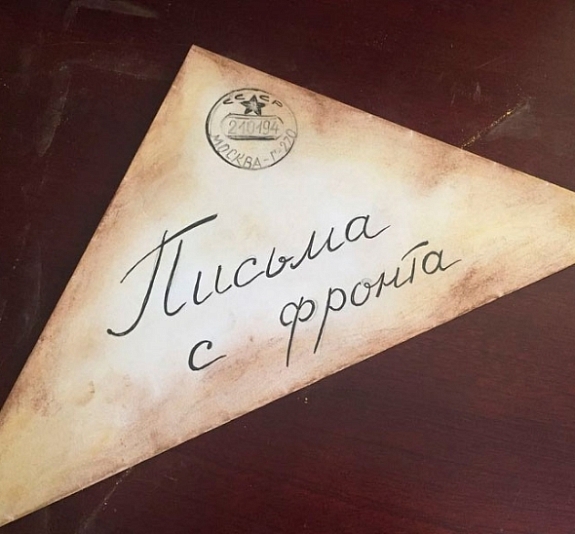 СССР
210194
МОСКВА-Г-220
Письма
с фронта